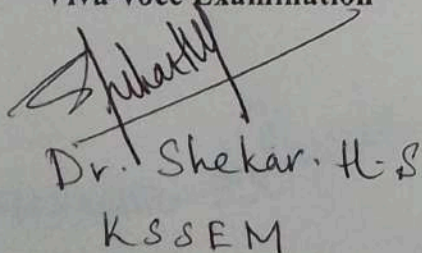 Viva Voce Examination
Dr. Shekar. H. S
KSSEM